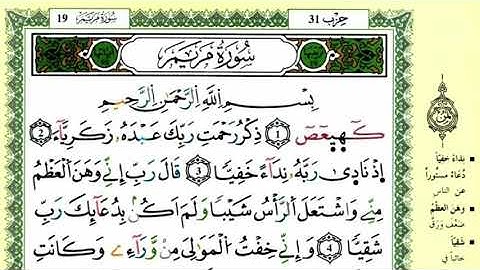 19 سُورَةُ مَرْيَم
حِزْب 31
سُورَةُ مَرْيَم
بِسْمِ اِللَّهِ اِلرَّحْمَٰنِ اِلرَّحِيمِ
كَٓهيعٓصٓ 1 ذِكْرُ رَحْمَتِ رَبِّكَ عَبْدَهُۥ زَكَرِيَّآءَ 2
إِذْ نَادَىٰ رَبَّهُۥ نِدَآءً خَفِيّاً 3 قَالَ رَبِّ إِنِّے وَهَنَ اَلْعَظْمُ
مِنِّے وَاشْتَعَلَ اَلرَّأْسُ شَيْباً وَلَمَ اَكُنۢ بِدُعَآئِكَ رَبِّ
شَقِيّاً 4 وَإِنِّے خِفْتُ اُلْمَوَٰلِيَ مِنْ وَّرَآءِے وَكَانَتِ
نِدَاءً خَفِيّاً
دُعَاءً مَسْتُوراً
عن الناس
وَهَنَ العَظْمُ
ضَعُفَ وَرَقَّ
شَقِيّاً
خائباً في